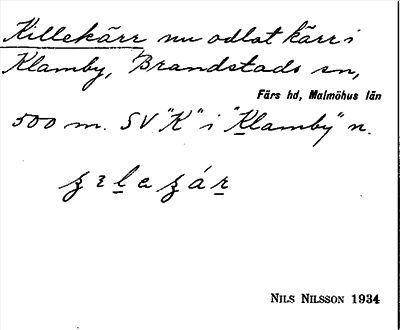 Killekärr nu odlat kärr i
Klamby, Brandstads sn,
Färs hd, Malmöhus län
500 m. SV "K" i "Klamby" n.
NILS NILSSON 1934